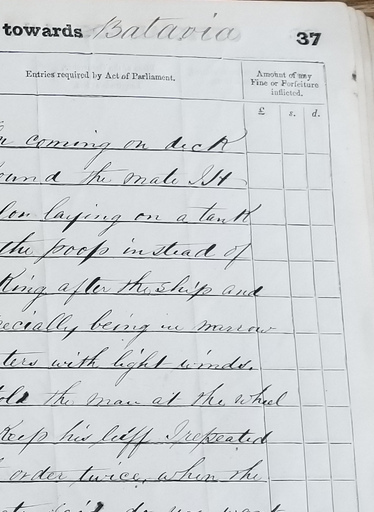 towards Batavia 37
Entries required by Act of Parliament.
Amount of any Fine or Forfeiture inflicted.
£ s. d.
coming on deck
the mate
laying on a tank
the poop instead of
king after the ship and
ecially being in narrow
ters with light winds.
old the man at the wheel
Keep his luff I repeated
order twice, when the